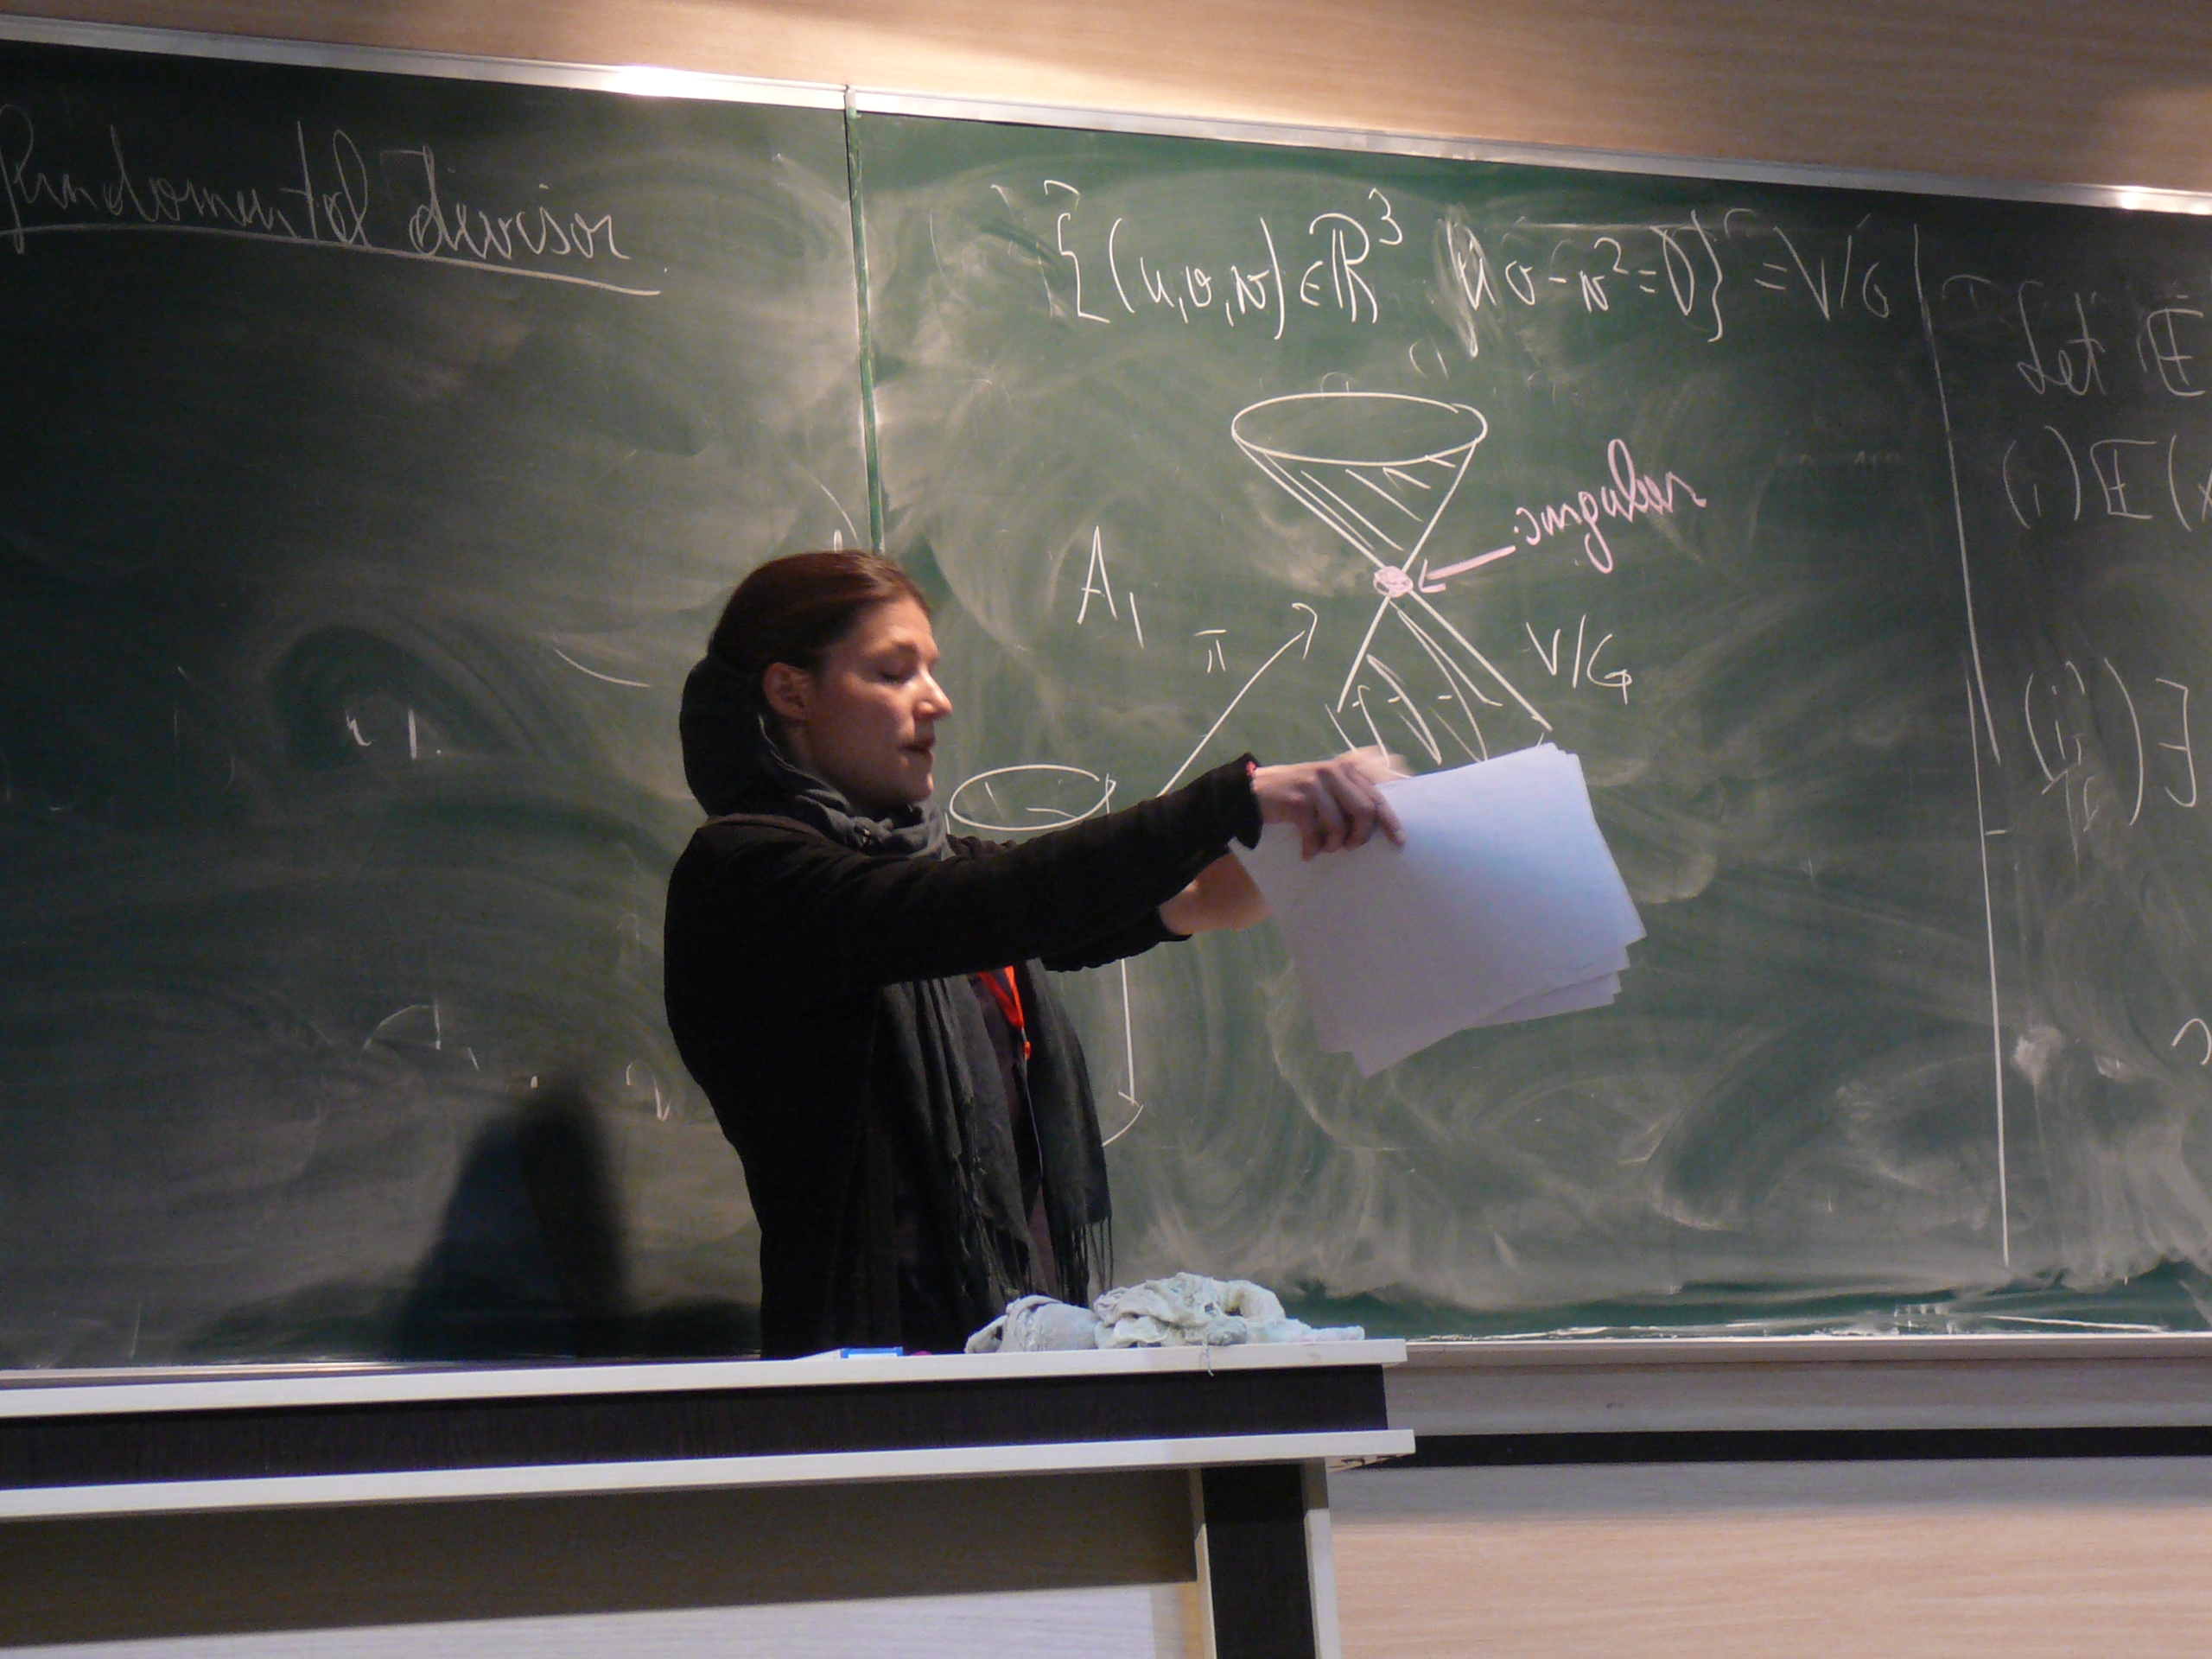 Fundamental divisor
{(u,v,w) ∈ ℝ³ uv-w²=0} = V/G
singular
A₁
π
V/G
Let E
(i) E(
(ii) ∃